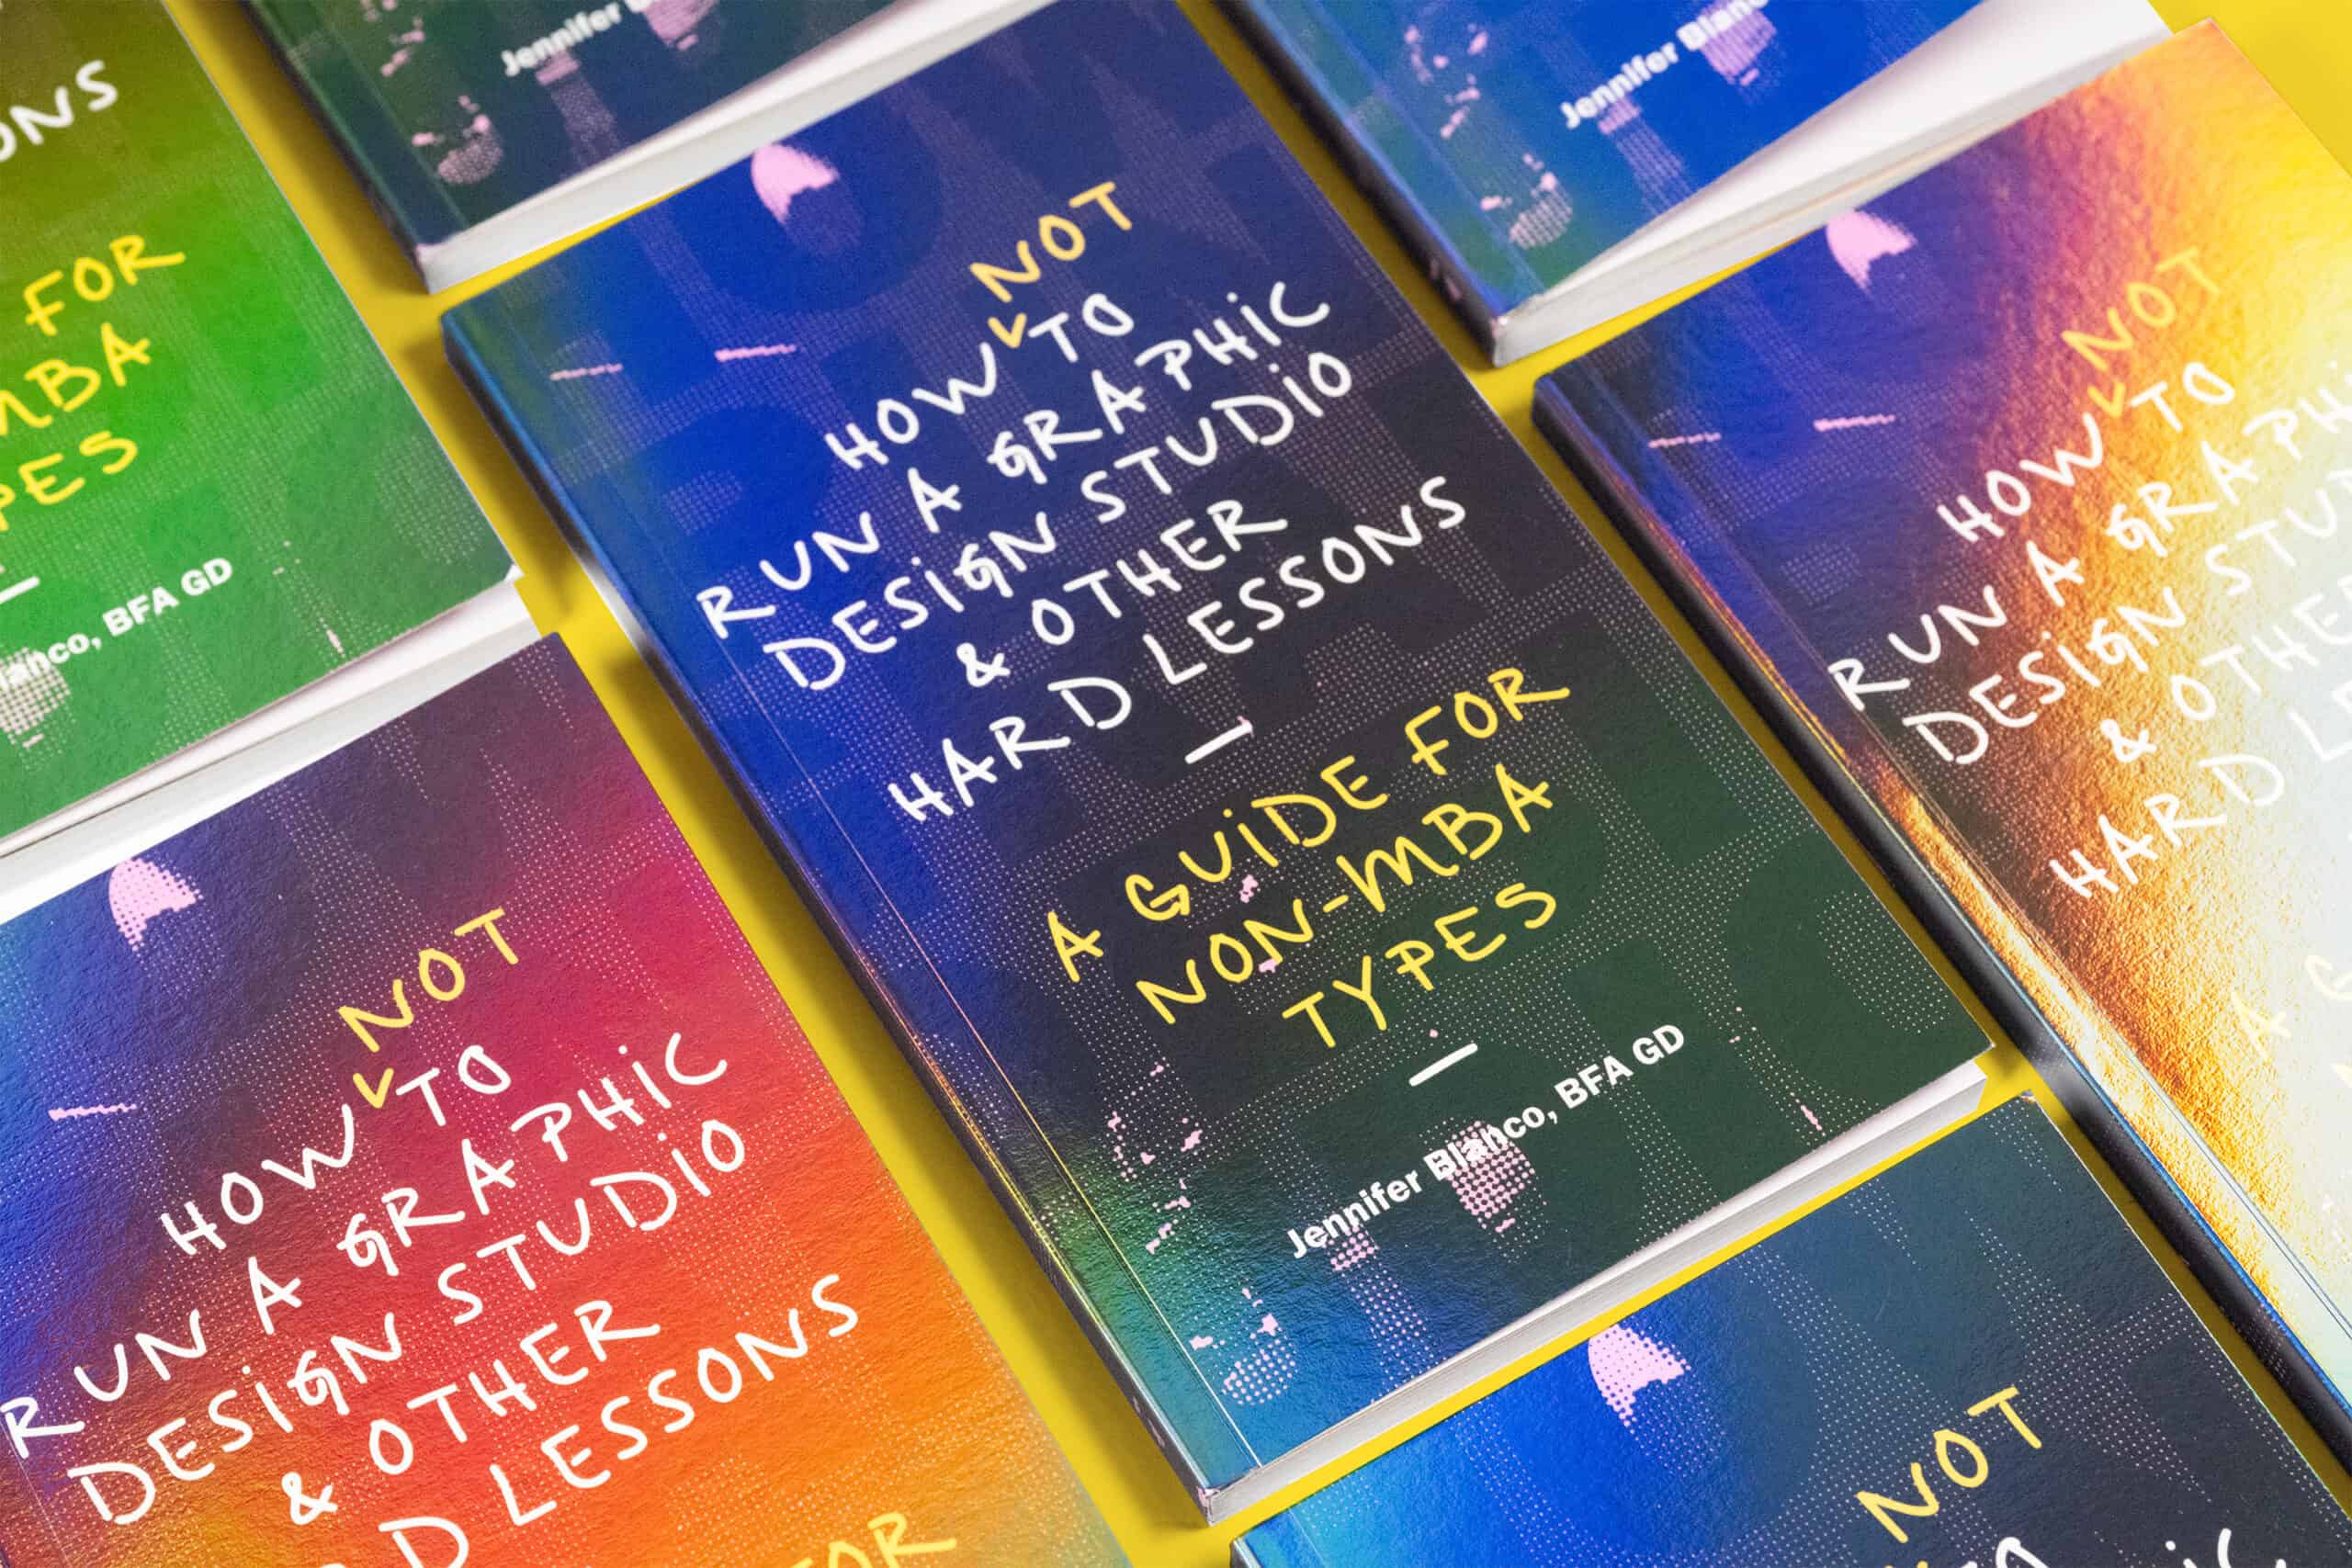 ONS
FOR
MBA
PES
anco, BFA GD
Jennifer
Jennifer Blanc
NOT
HOW TO
RUN A GRAPHIC
DESIGN STUDIO
& OTHER
HARD LESSONS
—
A GUIDE FOR
NON-MBA
TYPES
—
Jennifer Blanco, BFA GD
NOT
HOW TO
RUN A GRAPHI
DESIGN STUD
& OTHE
HARD L
A G
NOT
HOW TO
RUN A GRAPHIC
DESIGN STUDIO
& OTHER
D LESSONS
FOR
NOT